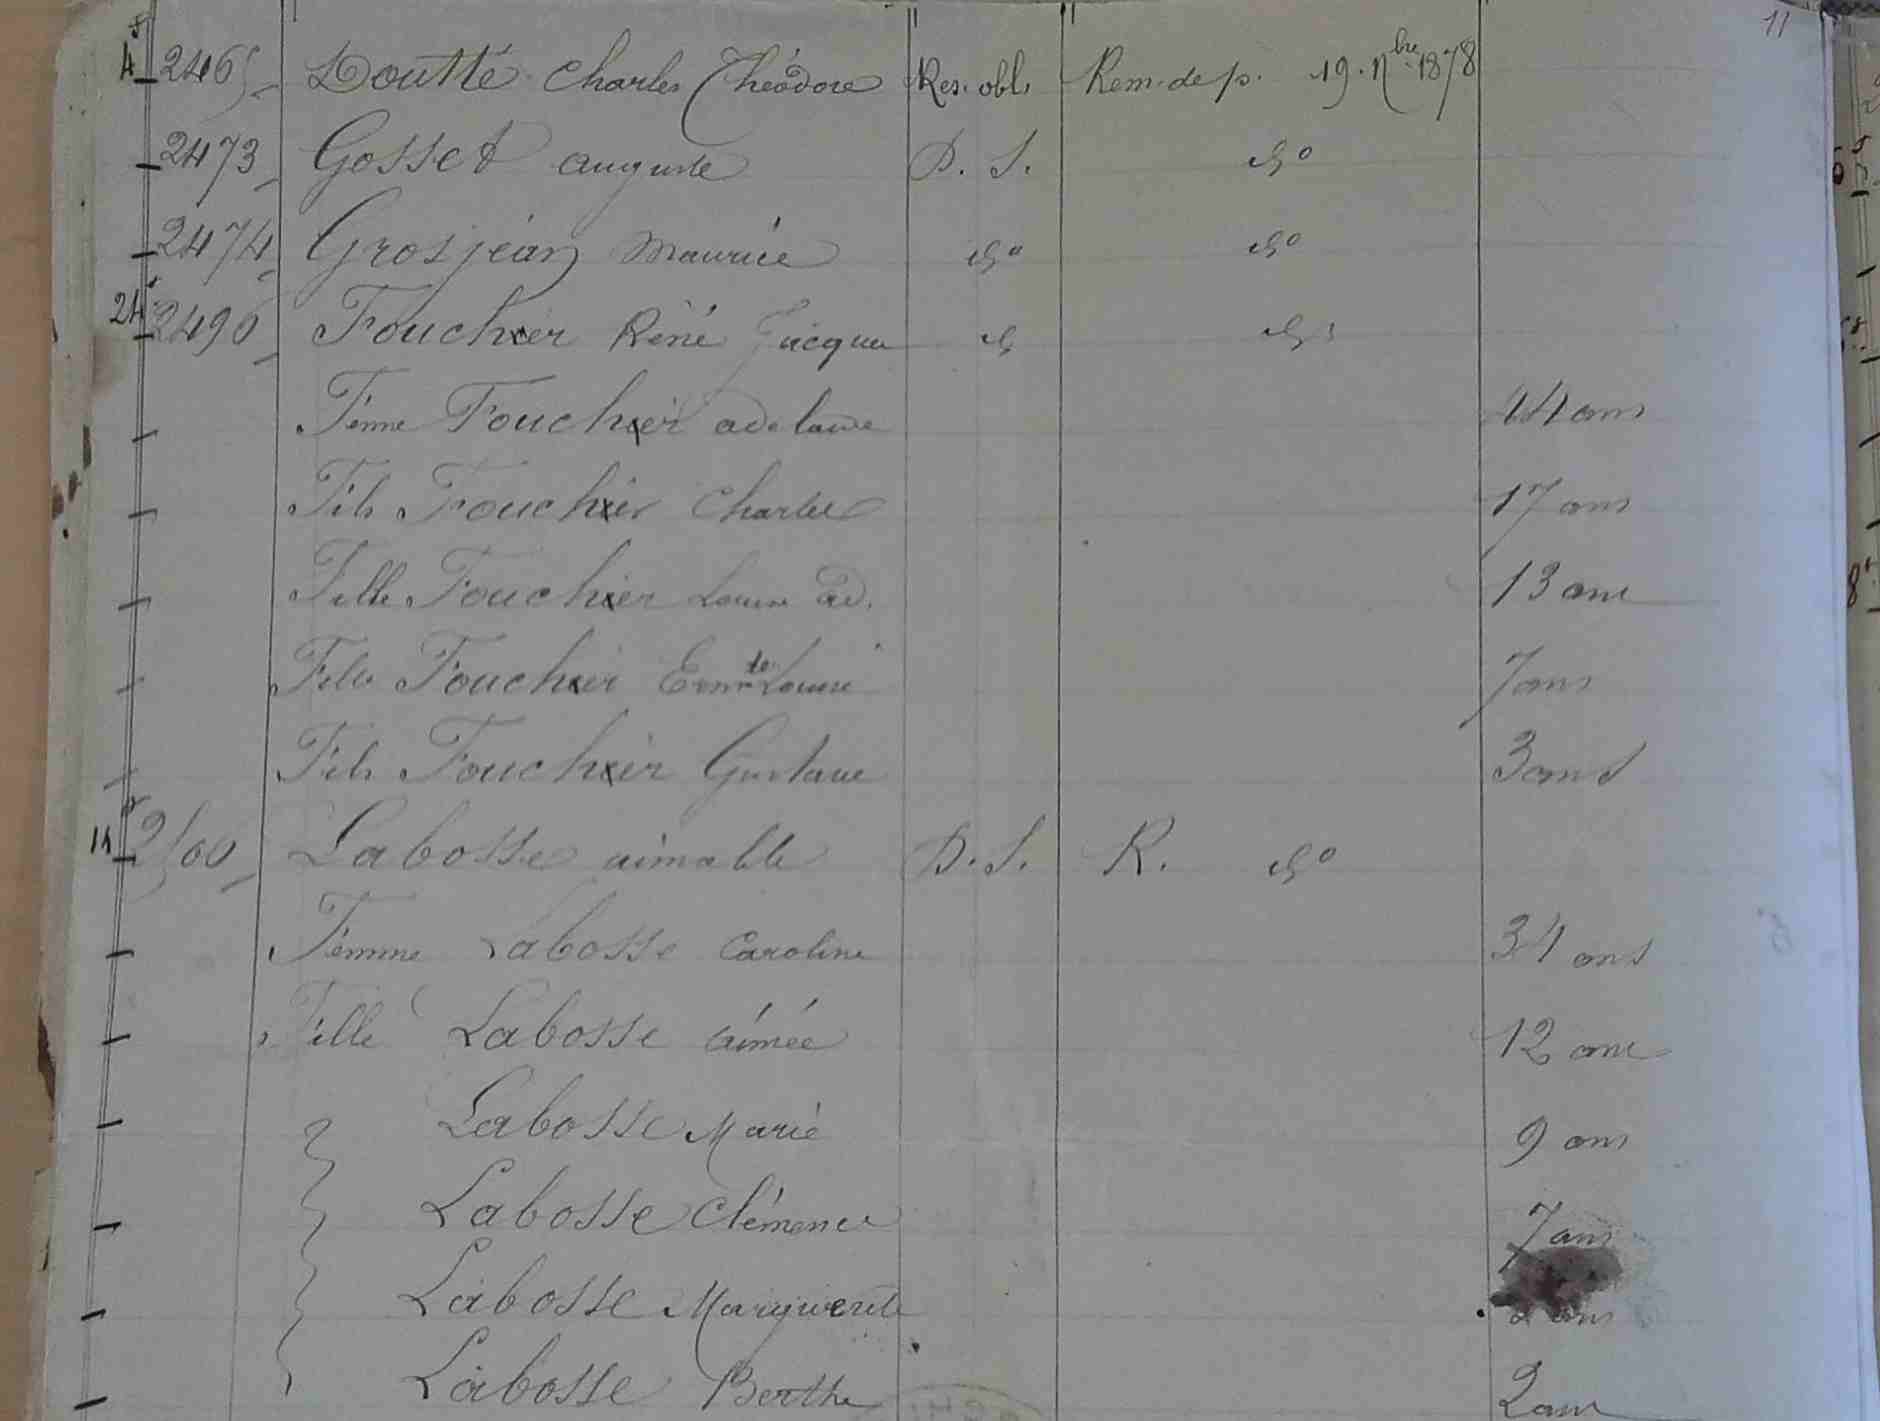 11
4 2465 Doutté Charles Théodore Res. obl. Rem. de p. 19. 9bre 1878
2473 Gosset auguste D. S. do
2474 Grosjean Maurice do do
24 2490 Foucher René Jacques d do
Femme Foucher adelaide 44 ans
Fils Foucher Charles 17 ans
Fille Foucher Louise ad. 13 ans
Fille Foucher Ernte Louise 7 ans
Fils Foucher Gustave 3 ans
14 2500 Labosse aimable D. S. R. do
Femme Labosse Caroline 34 ans
Fille Labosse aimée 12 ans
Labosse Marie 9 ans
Labosse Clémence 7 ans
Labosse Marguerite ans
Labosse Berthe 2 ans